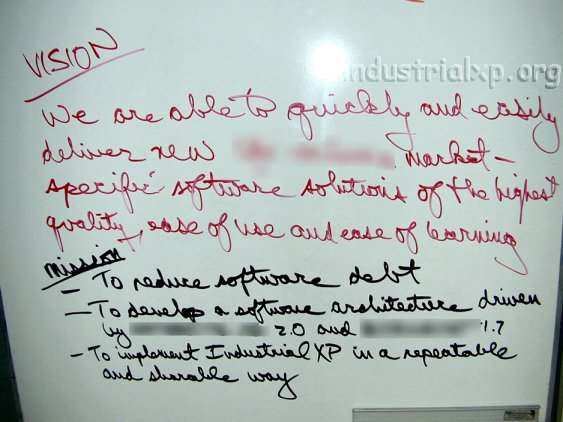 industrialxp.org
VISION
We are able to quickly and easily
deliver new market-
specific software solutions of the highest
quality, ease of use and ease of learning
mission
- To reduce software debt
- To develop a software architecture driven
by 2.0 and 1.7
- To implement IndustrialXP in a repeatable
and sharable way